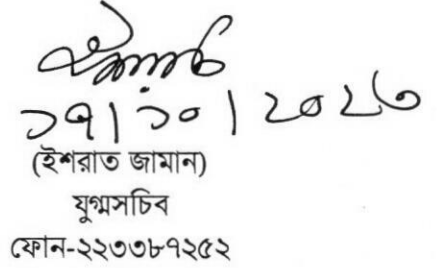 ১৭/১০/২০২৩
(ইশরাত জামান)
যুগ্মসচিব
ফোন-২২৩৩৮৭২৫২